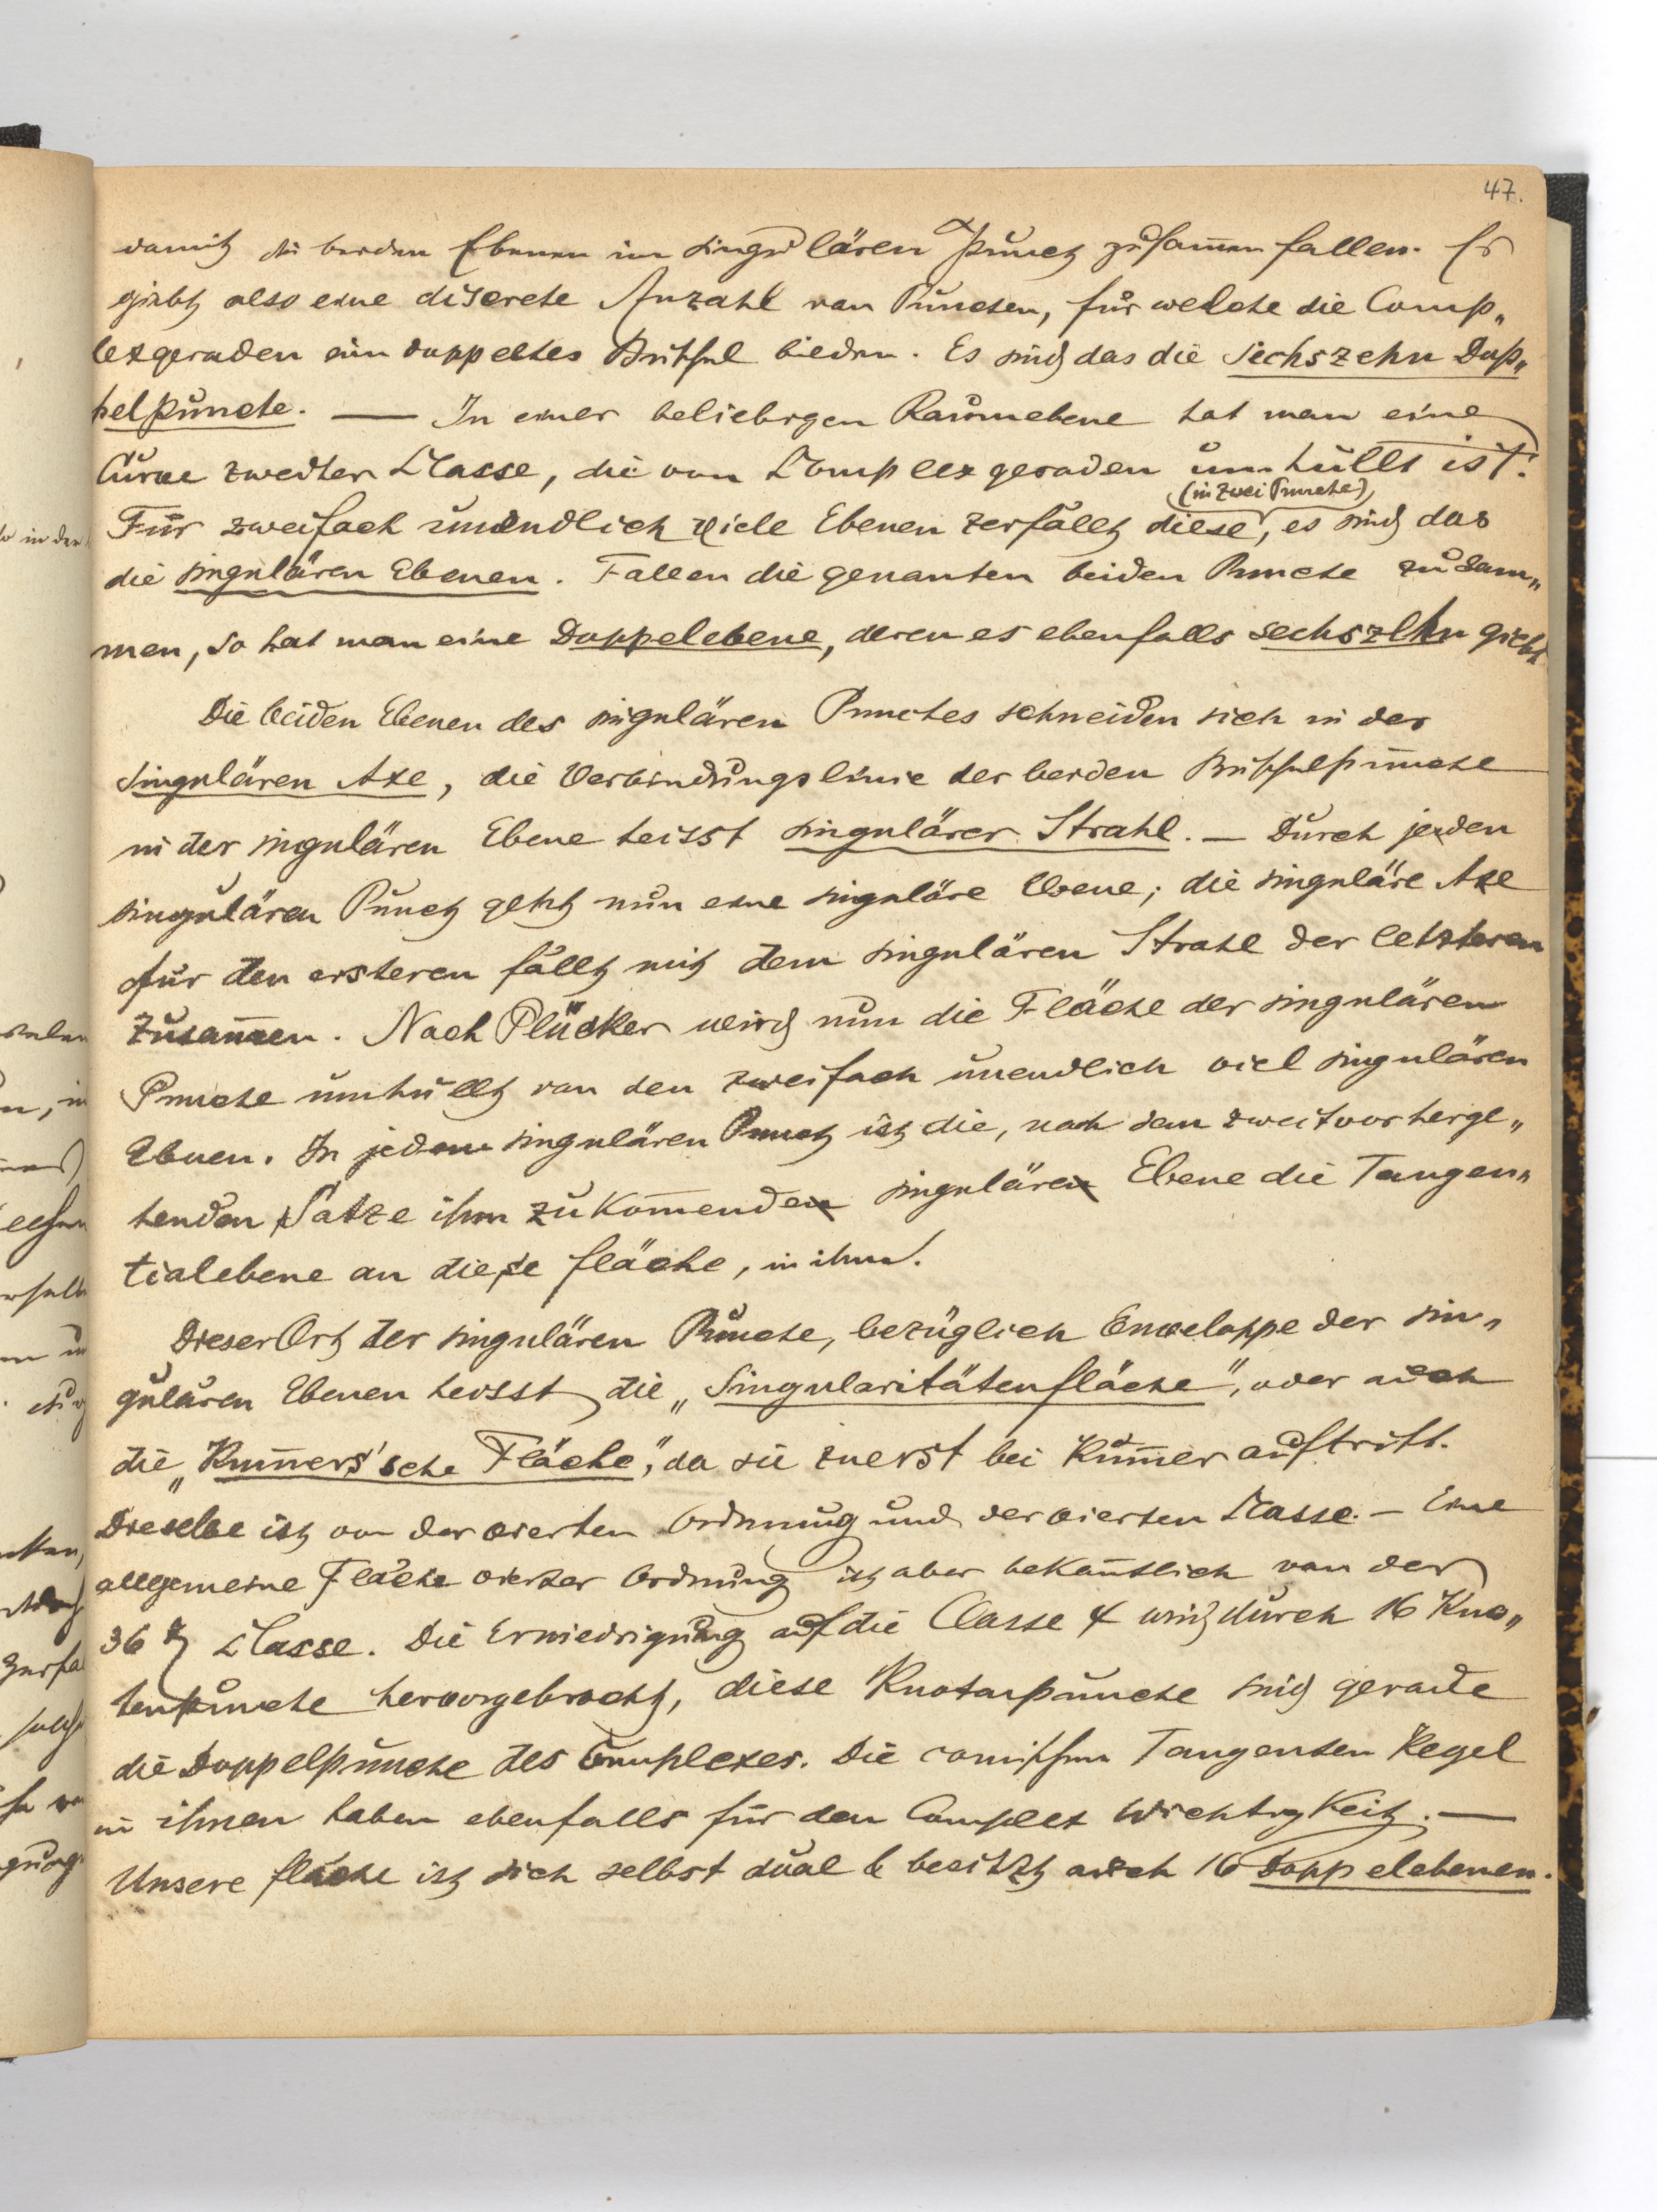 47.
damit die beiden Ebenen im singulären Punct zusam̅en fallen. Es
giebt also eine discrete Anzahl von Puncten, für welche die Comp„
lexgeraden ein doppeltes Büschel bilden. Es sind das die sechszehn Dop„
pelpuncte. — In einer beliebigen Raumebene hat man eine
Curve zweiter Classe, die von Complexgeraden umhüllt ist.
(in zwei Puncte)
Für zweifach unendlich viele Ebenen zerfällt diese, es sind das
die singulären Ebenen. Fallen die genanten beiden Puncte zusam„
men, so hat man eine Doppelebene, deren es ebenfalls sechszehn giebt
Die beiden Ebenen des singulären Punctes schneiden sich in der
singulären Axe, die Verbindungslinie der beiden Büschelpuncte
in der singulären Ebene heisst singulärer Strahl. — Durch jeden
singulären Punct geht nun eine singuläre Ebene; die singuläre Axe
für den ersteren fällt mit dem singulären Strahl der letzteren
zusam̅en. Nach Plücker wird nun die Fläche der singulären
Puncte umhüllt von den zweifach unendlich viel singulären
Ebnen. In jedem singulären Punct ist die, nach dem zweitvorherge„
henden Satze ihm zukom̅enden singulären Ebene die Tangen„
tialebene an diese Fläche, in ihm.
Dieser Ort der singulären Puncte, bezüglich Enveloppe der sin„
gulären Ebenen heisst die „Singularitätenfläche“, oder auch
die „Kum̅ers'sche Fläche“, da sie zuerst bei Kum̅er auftritt.
Dieselbe ist von der vierten Ordnung und der vierten Classe. — Eine
allgemeine Fläche vierter Ordnung ist aber bekan̅tlich von der
36 Classe. Die Erniedrigung auf die Classe 4 wird durch 16 Kno„
tenpuncte hervorgebracht, diese Knotenpuncte sind gerade
die Doppelpuncte des Complexes. Die conischen Tangenten Kegel
in ihnen haben ebenfalls für den Complex Wichtigkeit. —
Unsere Fläche ist sich selbst dual & besitzt auch 16 Doppelebenen.